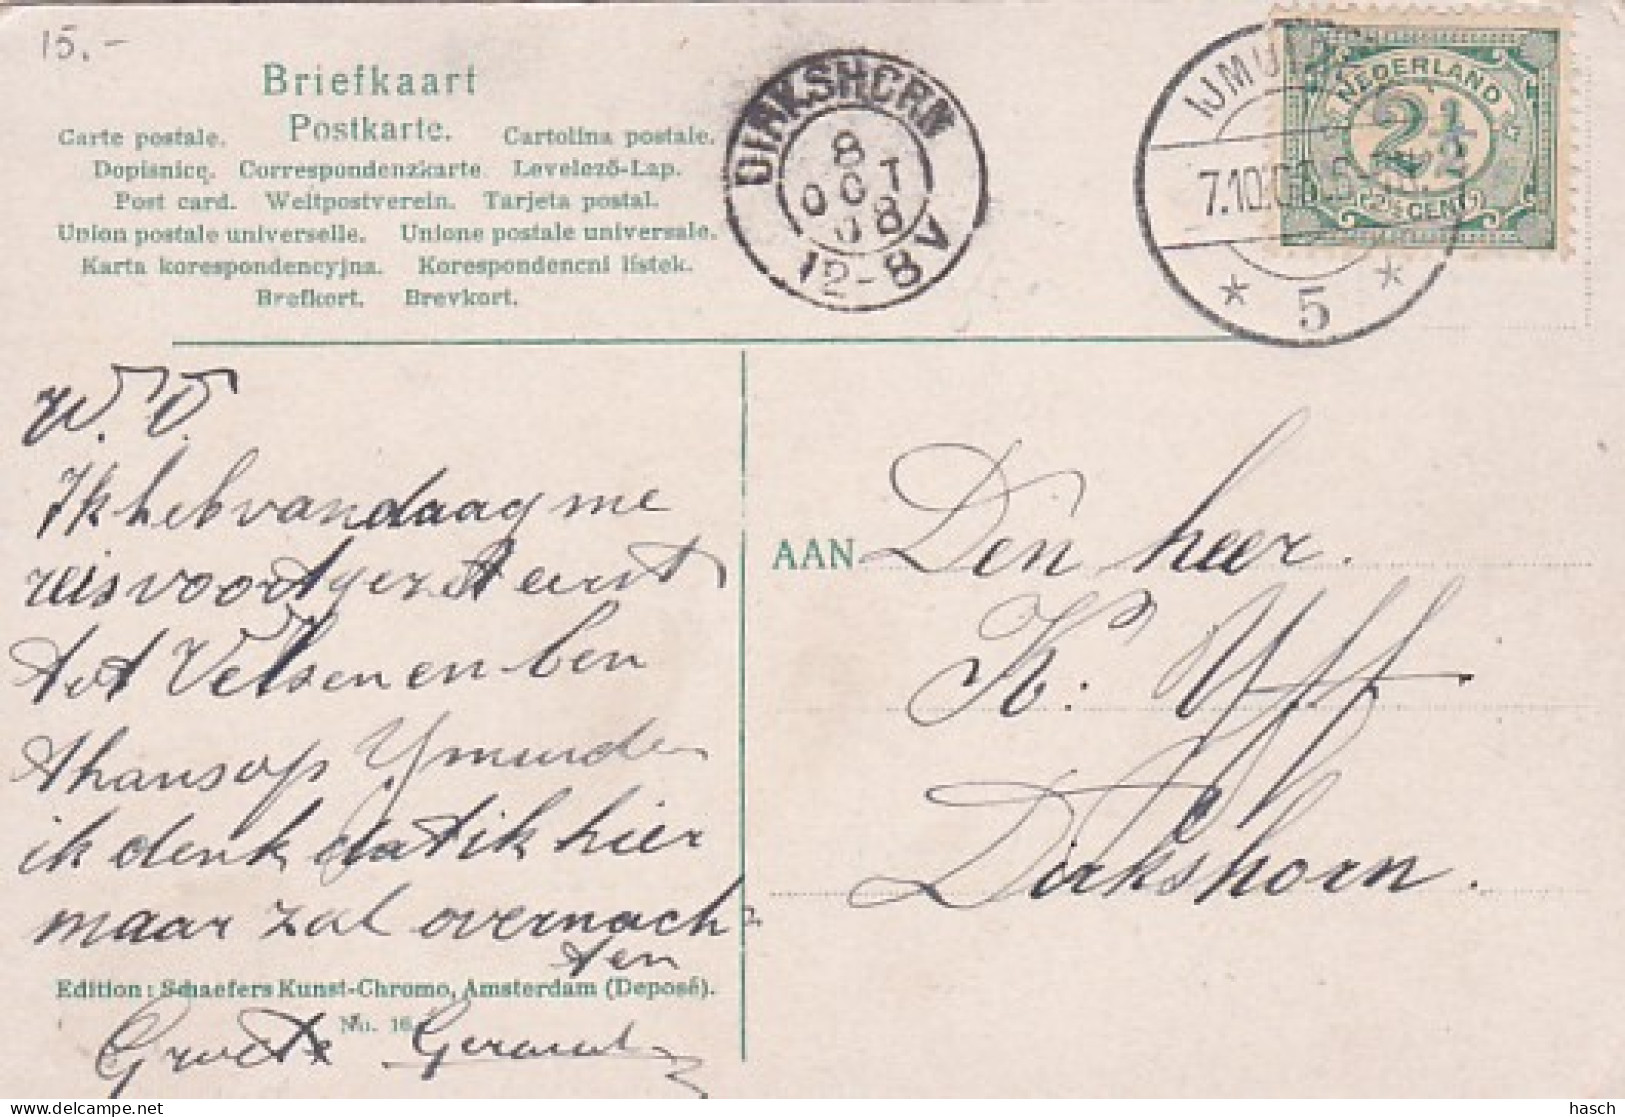 15.-
Briefkaart
Postkarte.
Carte postale. Cartolina postale.
Dopisnicę. Correspondenzkarte Levelező-Lap.
Post card. Weltpostverein. Tarjeta postal.
Union postale universelle. Unione postale universale.
Karta korespondencyjna. Korespondencni lístek.
Brefkort. Brevkort.
DIRKSHORN
8 OCT 08
12-8V
IJMUIDEN
7.10.08
5
NEDERLAND
2½
(2½ CENT)
W. V.
Ik heb vandaag me
reis voortgezet eerst
tot Velsen en ben
thans op Ymuiden
ik denk dat ik hier
maar zal overnach=
ten
Edition: Schaefers Kunst-Chromo, Amsterdam (Deposé).
No. 16.
Groete Gerard
AAN Den heer.
K. Yff
Dirkshorn.
hasch